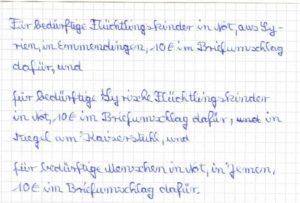 Für bedürftige Flüchtlingskinder in Not, aus Sy-
rien, in Emmendingen, 10€ im Briefumschlag
dafür, und
für bedürftige Syrische Flüchtlingskinder
in Not, 10€ im Briefumschlag dafür, und in
Riegel am Kaiserstuhl, und
für bedürftige Menschen in Not, in Jemen,
10€ im Briefumschlag dafür.